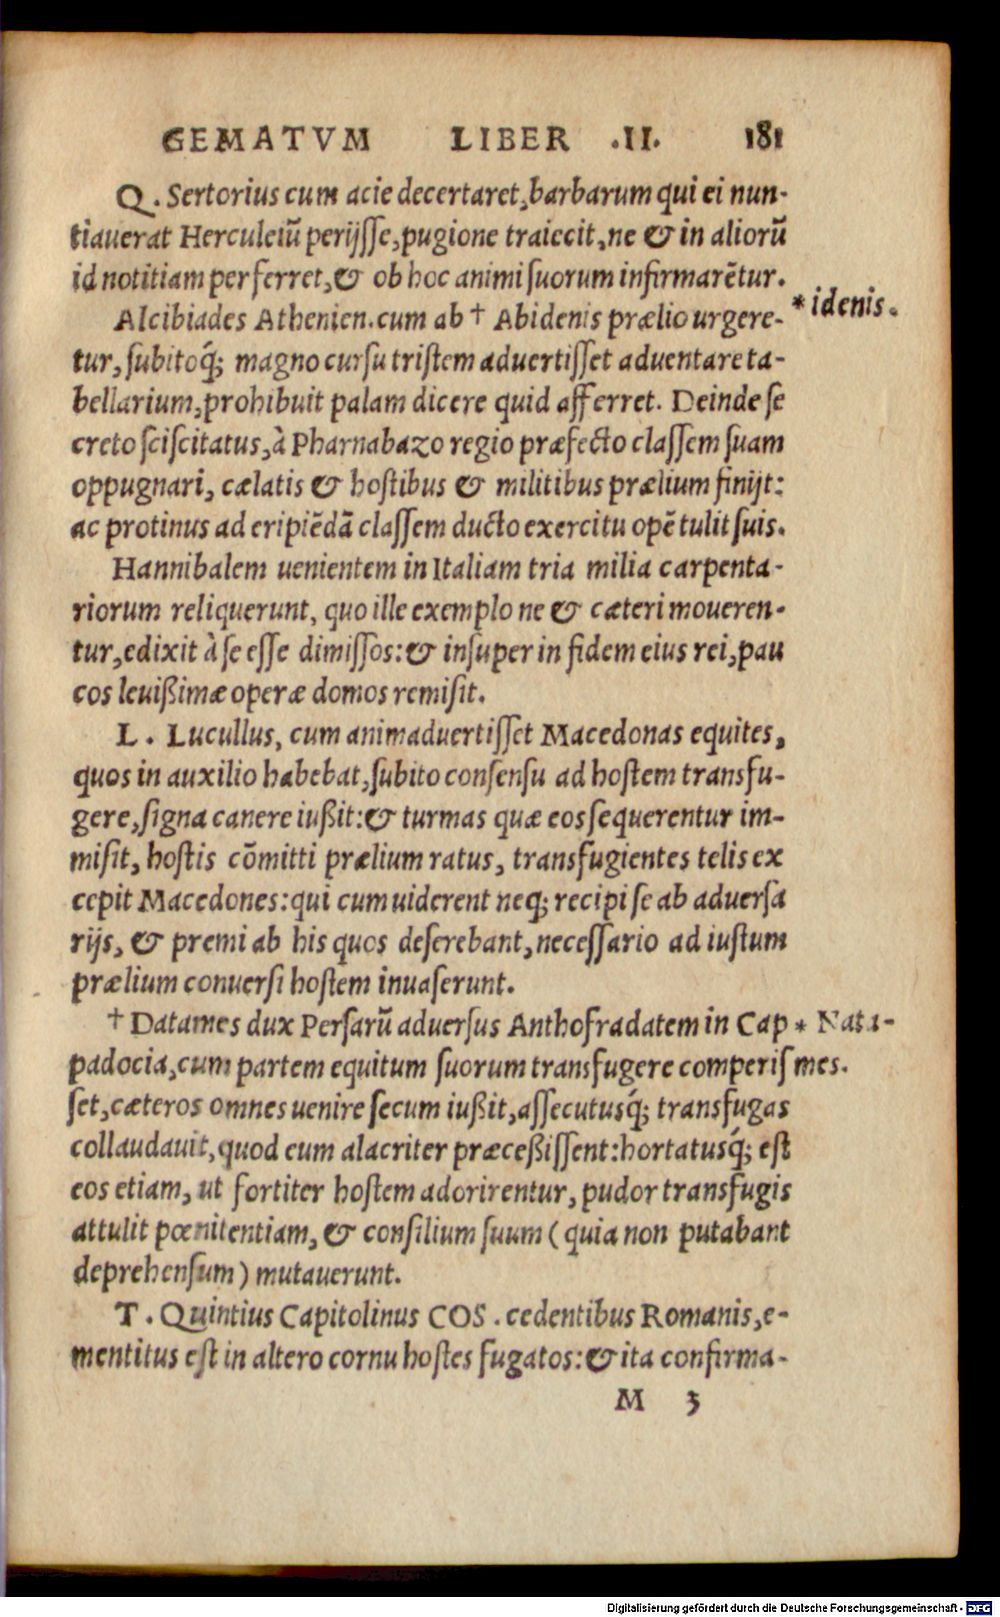 GEMATVM LIBER .II. 181
Q. Sertorius cum acie decertaret, barbarum qui ei nun-
tiauerat Herculeiũ perijsse, pugione traiecit, ne & in aliorũ
id notitiam perferret, & ob hoc animi suorum infirmarẽtur.
Alcibiades Athenien. cum ab † Abidenis prælio urgere- * idenis.
tur, subitoq́; magno cursu tristem aduertisset aduentare ta-
bellarium, prohibuit palam dicere quid afferret. Deinde se
creto sciscitatus, à Pharnabazo regio præfecto classem suam
oppugnari, cælatis & hostibus & militibus prælium finijt:
ac protinus ad eripiẽdã classem ducto exercitu opẽ tulit suis.
Hannibalem uenientem in Italiam tria milia carpenta-
riorum reliquerunt, quo ille exemplo ne & cæteri moueren-
tur, edixit à se esse dimissos: & insuper in fidem eius rei, pau
cos leuißimæ operæ domos remisit.
L. Lucullus, cum animaduertisset Macedonas equites,
quos in auxilio habebat, subito consensu ad hostem transfu-
gere, signa canere iußit: & turmas quæ eos sequerentur im-
misit, hostis cõmitti prælium ratus, transfugientes telis ex
cepit Macedones: qui cum uiderent neq; recipi se ab aduersa
rijs, & premi ab his quos deserebant, necessario ad iustum
prælium conuersi hostem inuaserunt.
† Datames dux Persarũ aduersus Anthofradatem in Cap * Nata-
padocia, cum partem equitum suorum transfugere comperis mes.
set, cæteros omnes uenire secum iußit, assecutusq́; transfugas
collaudauit, quod eum alacriter præceßissent: hortatusq́; est
eos etiam, ut fortiter hostem adorirentur, pudor transfugis
attulit pœnitentiam, & consilium suum (quia non putabant
deprehensum) mutauerunt.
T. Quintius Capitolinus COS. cedentibus Romanis, e-
mentitus est in altero cornu hostes fugatos: & ita confirma-
M 3
Digitalisierung gefördert durch die Deutsche Forschungsgemeinschaft - DFG